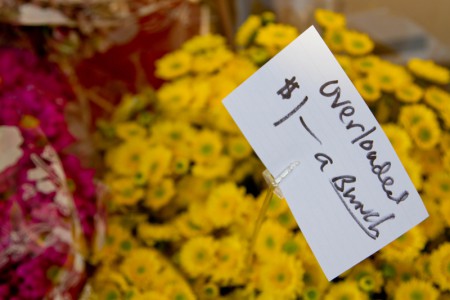 overloaded
$1- a Bunch